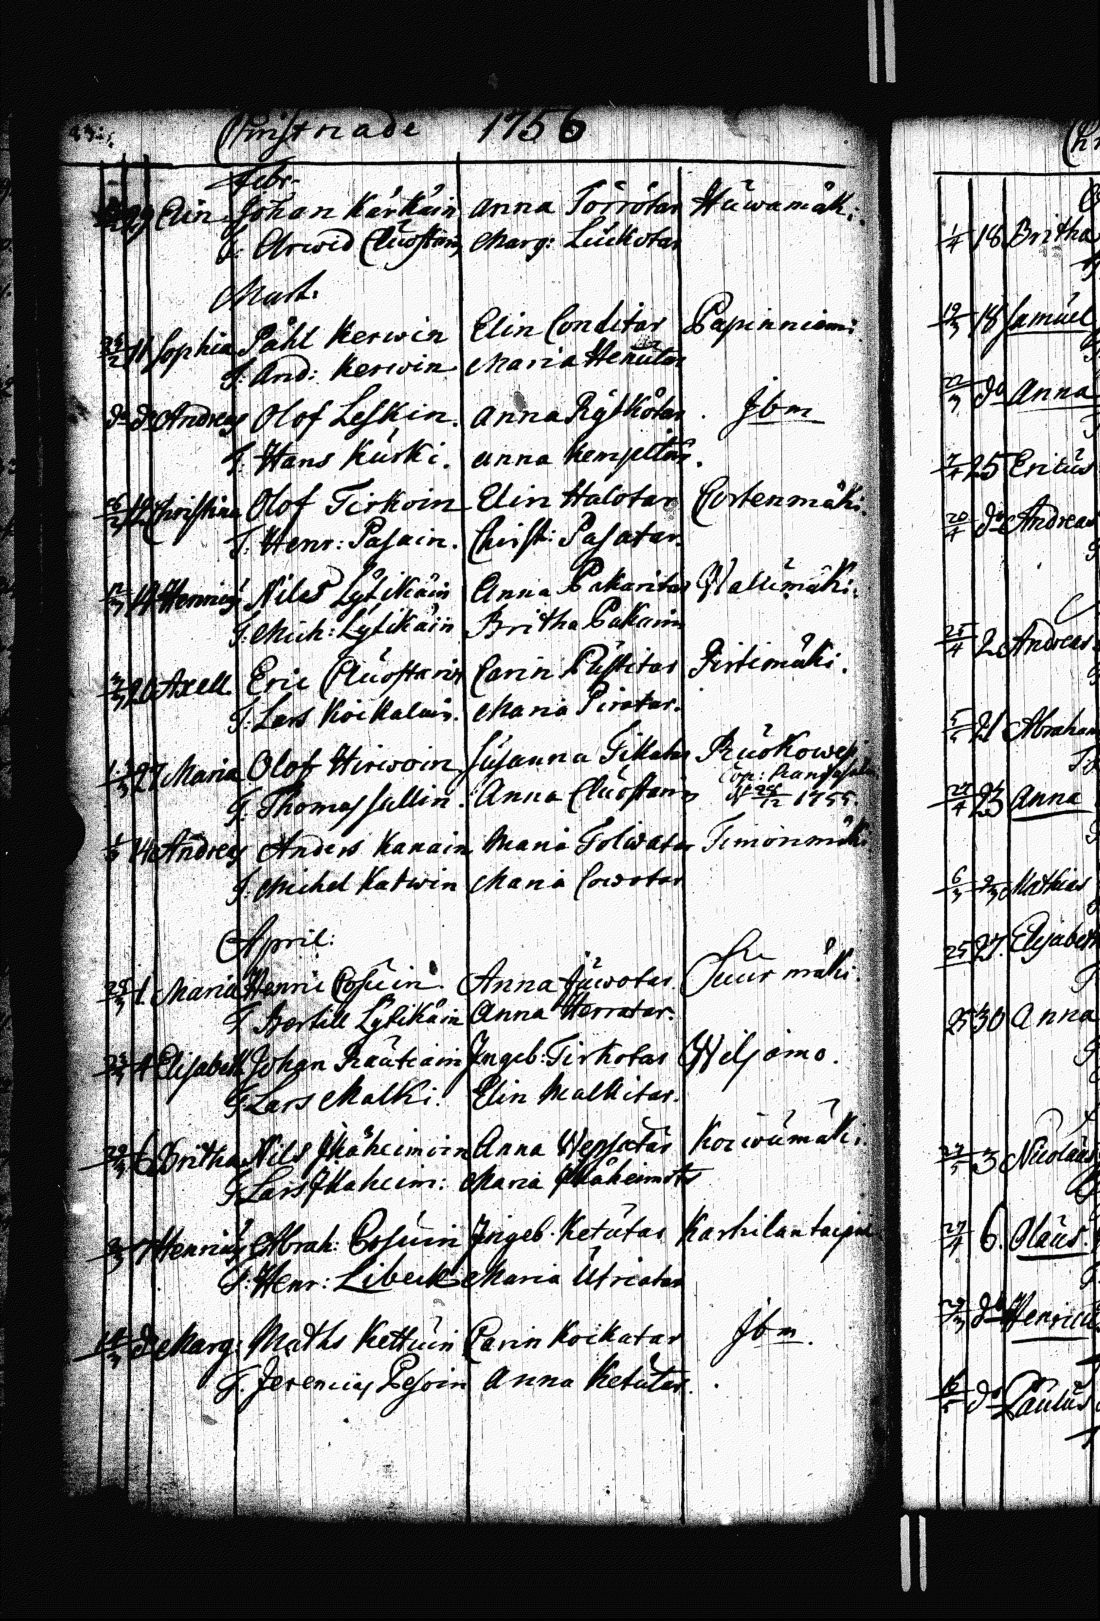 Christnade 1756
Febr.
29 Elin Johan Kärkäin Anna Törrötar Huwamäki
F. Arwid Cluostarin Marg: Luckotar
Mart:
11 Sophia Påhl Kerwin Elin Conditar Papinniemi
F. And: Kerwin Maria Henutar
do do Andreas Olof Leskin. Anna Rytkötar. Jbm
F. Hans Kurki. Anna Kempitar.
12 Christina Olof Tirkoin Elin Halotar Cortenmäki
F. Henr: Pasain. Christ: Pasatar.
14 Henrics Nils Lytikäin Anna Pakaritar Walumäki.
F. Mich: Lytikäin Britha Pakarin
20 Axell Eric Cluostarin Carin Pustitar Pirtimäki.
F. Lars Koikalain. Maria Piratar.
27 Maria Olof Hirwoin Susanna Tikatar Ruokowesi
Cop: Randasalmi
F. Thomas Sallin. Anna Cluostarin d 28/12 1755.
14 Andreas Anders Kanain Maria Tolwatar Timoinmäki
F. Michel Katwin Maria Cowotar
April:
25/3 1 Maria Henric Cosuin Anna Juwotar. Suur mäki.
F. Bertill Lytikäin Anna Herratar.
4 Elisabeth Johan Rautiain Ingeb: Tirkotar Weljamo.
F. Lars Malki. Elin Malkitar.
6 Britha Nils Ikäheimoin Anna Wepsätär Koiwumäki
F. Lars Ikaheim: Maria Ikäheimotr
7 Henrics Abrah: Cosuin Ingeb. Ketutar Karhilantaipal
F. Henr: Libeck Maria Utriatar
do Marg: Maths Kettuin Carin Koikatar Jbm.
F. Jeremias Pesoin Anna Ketutar.
1/4 18 Britha
19/3 18 Samuel
22/3 do Anna
7/4 25 Ericus
20/4 do Andreas
25/4 2 Andreas
21 Abraham
23 Anna
Mathias
25 27. Elisabeth
25 30 Anna
3 Nicolaus
27/4 6. Olaus.
do Henricus
do Paulus